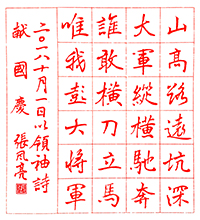 山髙路遠坑深
大軍縱橫馳奔
誰敢橫刀立馬
唯我彭大將軍
二〇一八十月一日以領袖詩
献國慶 張凤亮